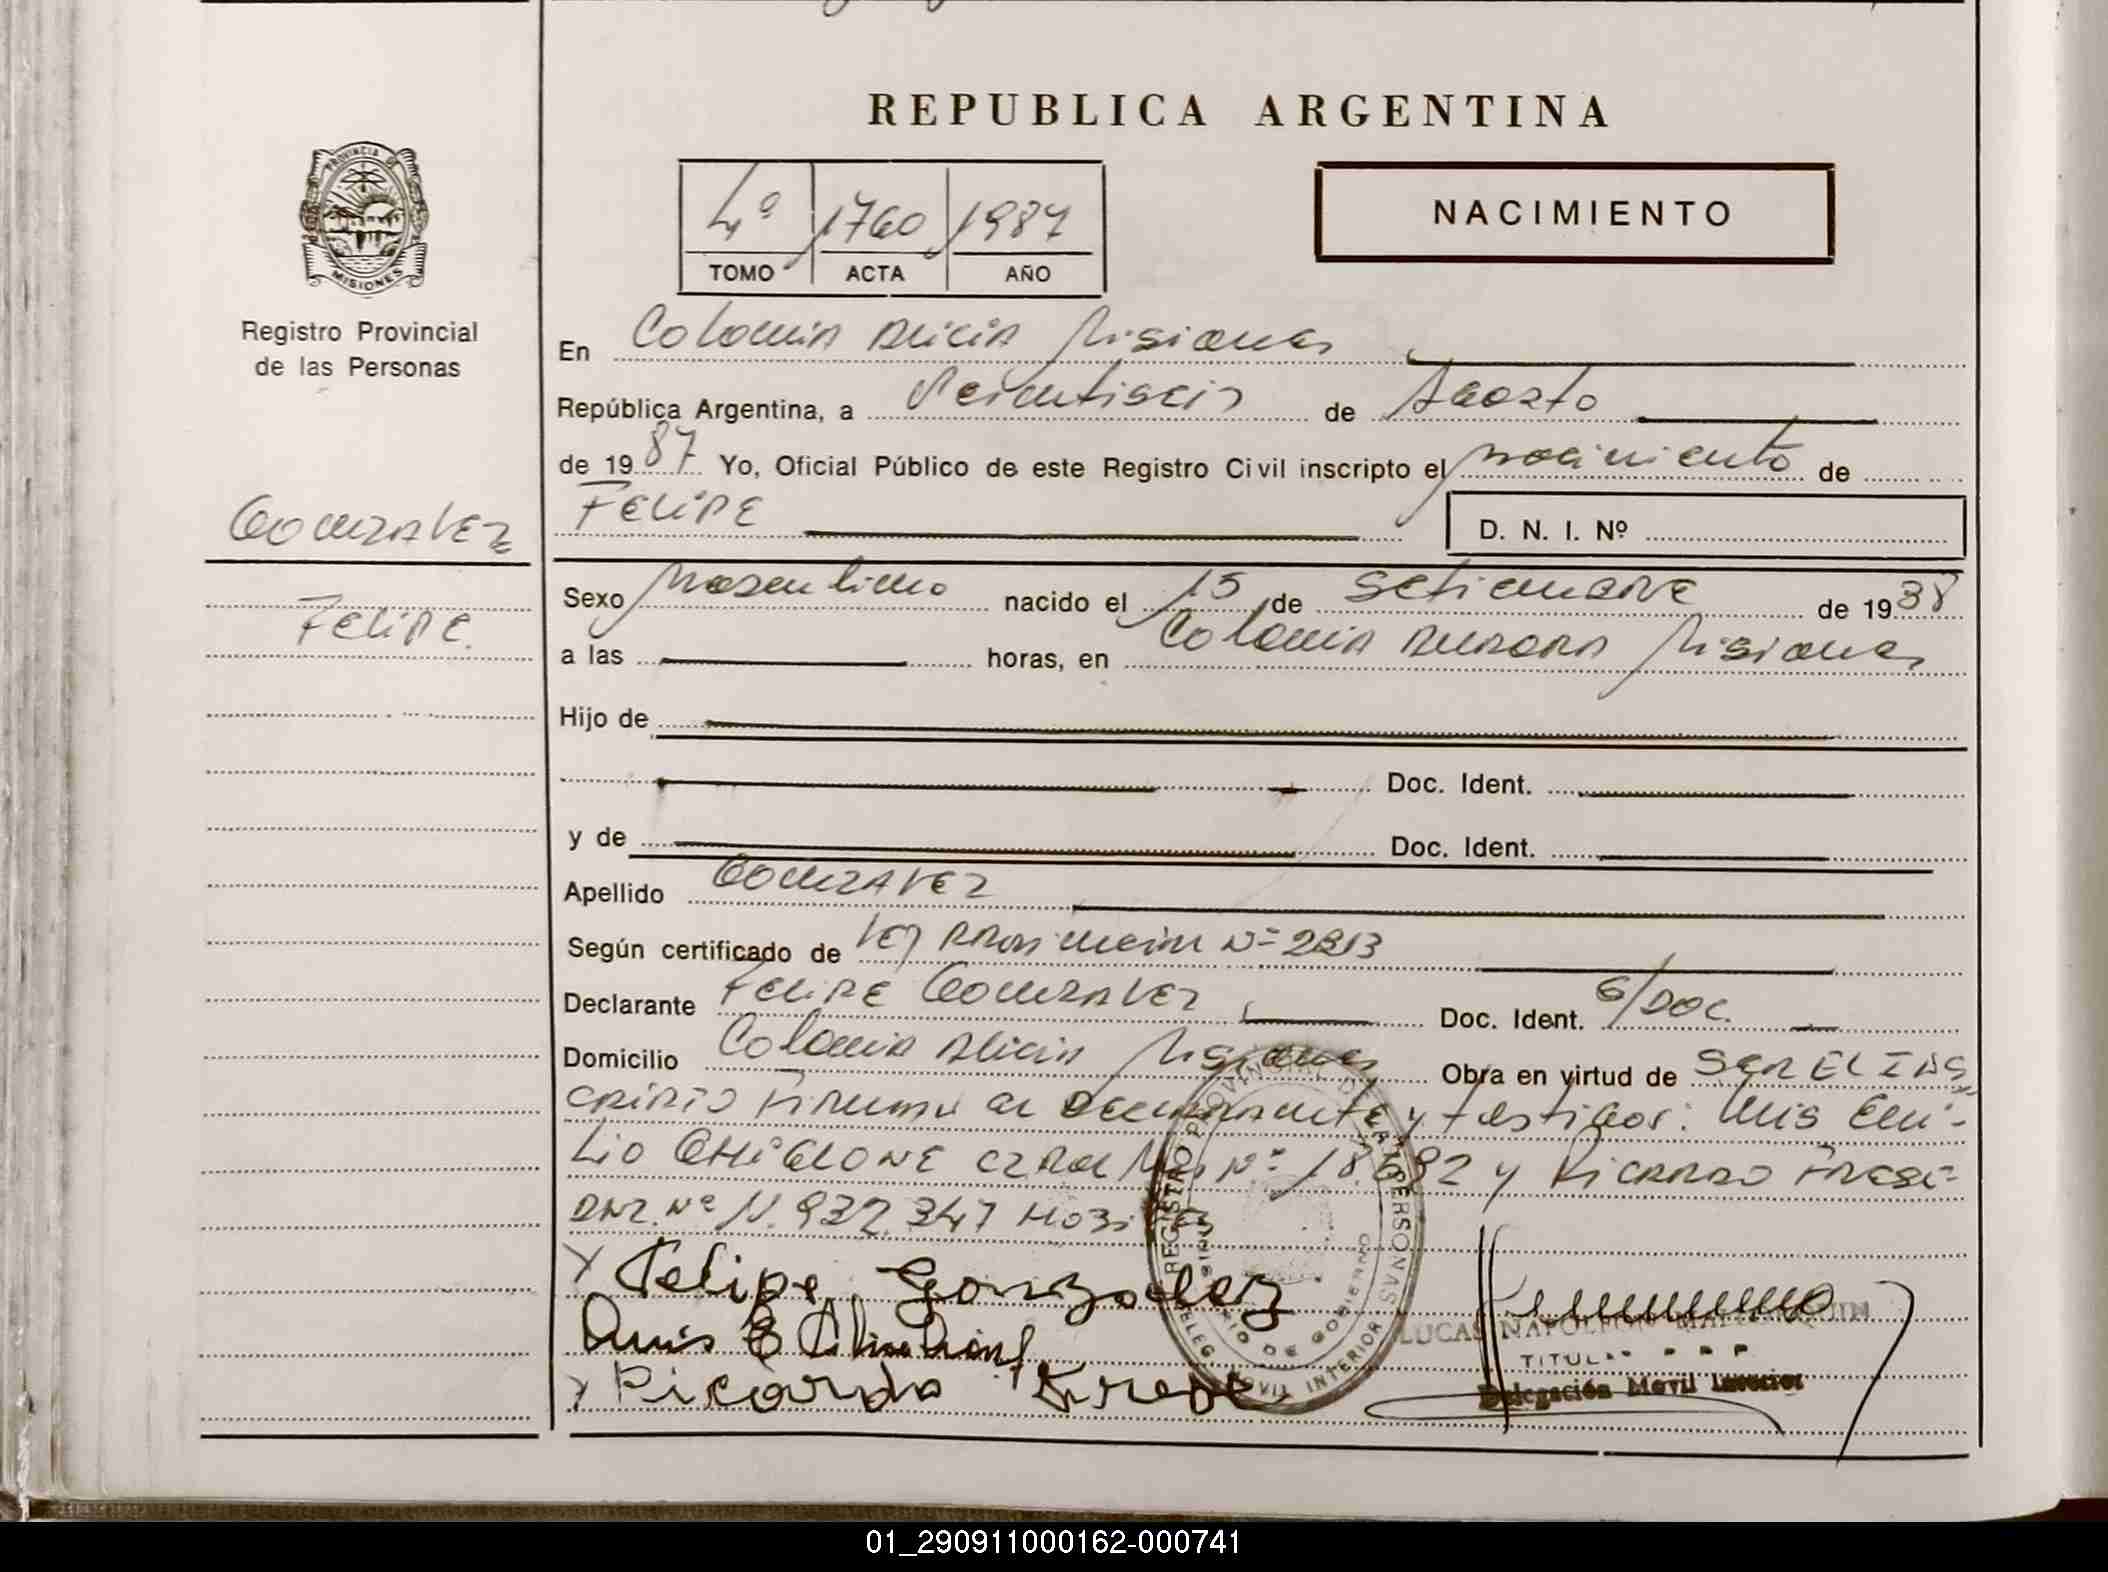 REPUBLICA ARGENTINA
PROVINCIA DE
MISIONES
Registro Provincial
de las Personas
4º 1760 1987
TOMO ACTA AÑO
NACIMIENTO
En Colonia Alicia Misiones
República Argentina, a Veintiseis de Agosto
de 1987 Yo, Oficial Público de este Registro Civil inscripto el nacimiento de
Felipe
D. N. I. Nº
Gonzalez
Felipe.
Sexo masculino nacido el 15 de Setiembre de 1938
a las horas, en Colonia Aurora Misiones
Hijo de
Doc. Ident.
y de Doc. Ident.
Apellido Gonzalez
Según certificado de Ley Provincial Nº 2213
Declarante Felipe Gonzalez Doc. Ident. S/Doc.
Domicilio Colonia Alicia Misiones Obra en virtud de Ser el ins
cripto Firman el Declarante y testigos: Luis Emi-
lio GHIGLIONE Nº 18.692 y Ricardo
DNI. Nº 11.932.347
Felipe Gonzalez
Luis E
Ricardo
REGISTRO PROVINCIAL DE LAS PERSONAS
MINISTERIO DE GOBIERNO
DELEG. MOVIL INTERIOR
LUCAS NAPOLEON
TITULAR
Delegación Movil Interior
01_290911000162-000741